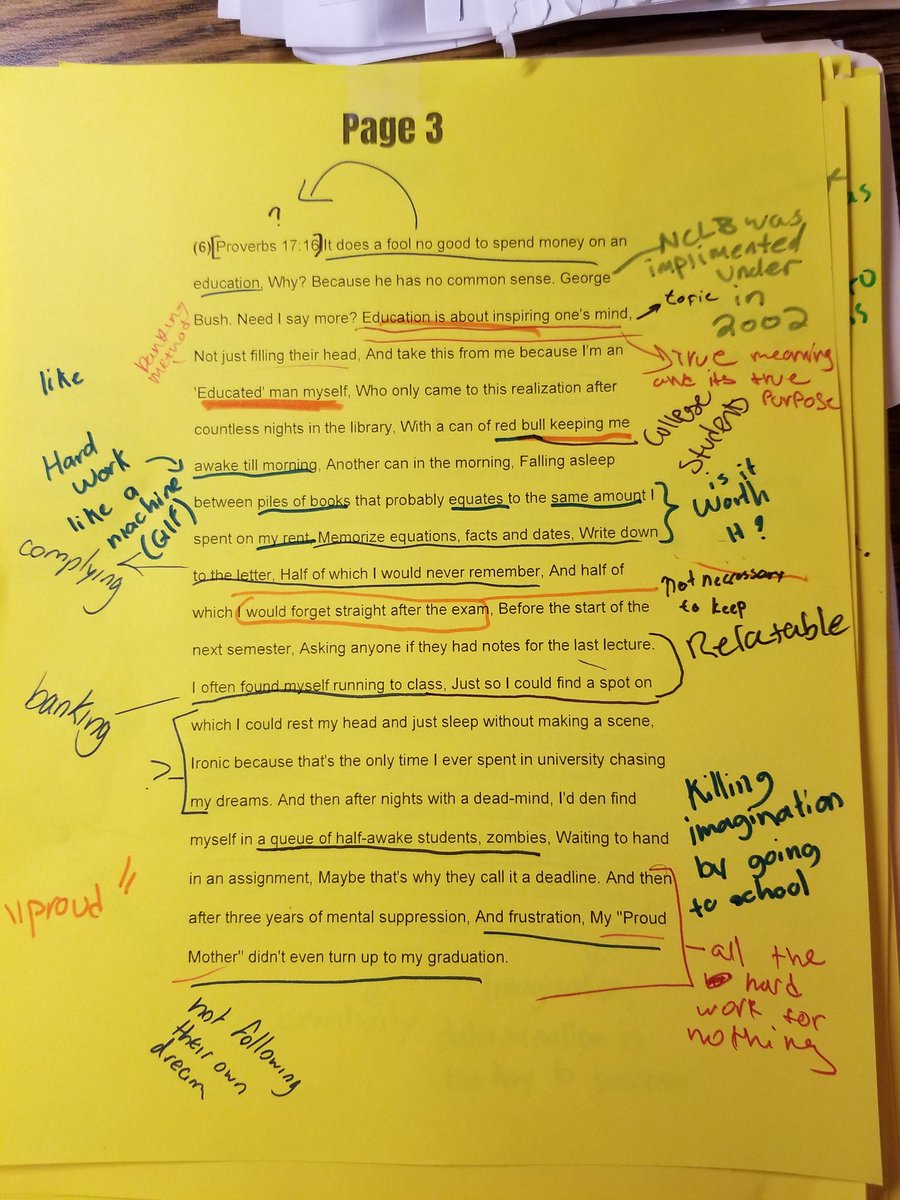 Page 3
?
(6)[Proverbs 17:16] It does a fool no good to spend money on an
education, Why? Because he has no common sense. George
Bush. Need I say more? Education is about inspiring one's mind,
Not just filling their head, And take this from me because I'm an
'Educated' man myself, Who only came to this realization after
countless nights in the library, With a can of red bull keeping me
awake till morning, Another can in the morning, Falling asleep
between piles of books that probably equates to the same amount I
spent on my rent. Memorize equations, facts and dates, Write down
to the letter, Half of which I would never remember, And half of
which I would forget straight after the exam, Before the start of the
next semester, Asking anyone if they had notes for the last lecture.
I often found myself running to class, Just so I could find a spot on
which I could rest my head and just sleep without making a scene,
Ironic because that's the only time I ever spent in university chasing
my dreams. And then after nights with a dead-mind, I'd den find
myself in a queue of half-awake students, zombies, Waiting to hand
in an assignment, Maybe that's why they call it a deadline. And then
after three years of mental suppression, And frustration, My "Proud
Mother" didn't even turn up to my graduation.
NCLB was
implimented
under
in
2002
topic
True meaning
and its true
purpose
College
Students
is it
worth
it?
not necessary
to keep
Relatable
Killing
imagination
by going
to school
all the
hard
work for
nothing
banking
method
like
Hard
work
like a
machine
complying
banking
?
"proud"
not following
their own
dream